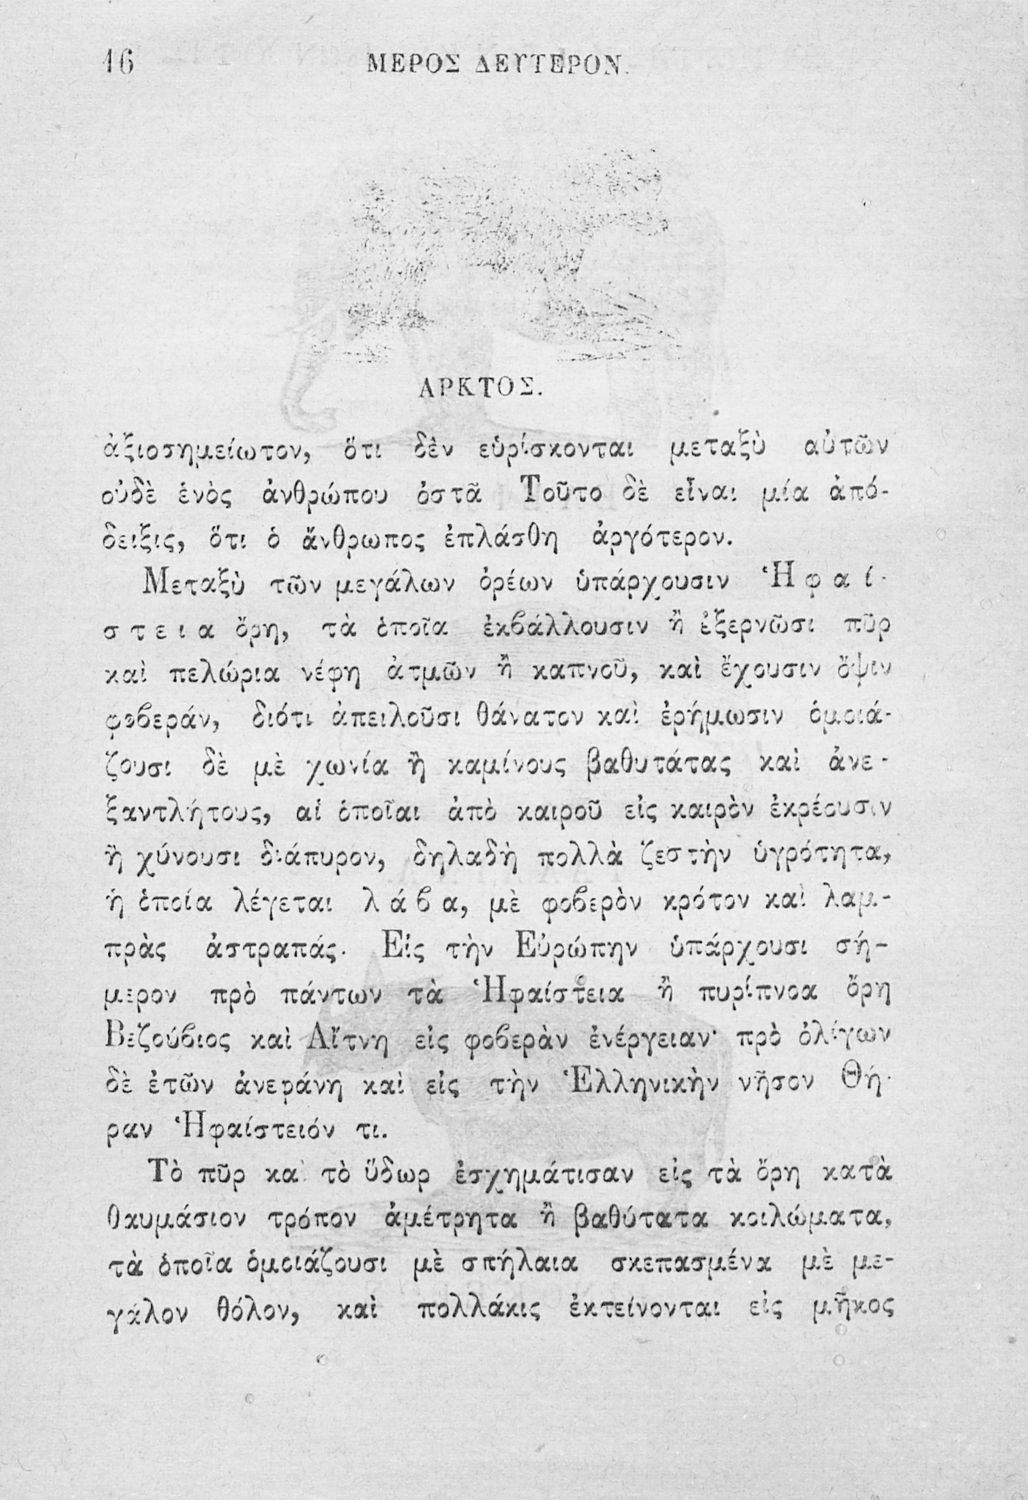 16 ΜΕΡΟΣ ΔΕΥΤΕΡΟΝ.
ΑΡΚΤΟΣ.
ἀξιοσημείωτον, ὅτι δὲν εὑρίσκονται μεταξὺ αὐτῶν
οὐδὲ ἑνὸς ἀνθρώπου ὀστᾶ Τοῦτο δὲ εἶναι μία ἀπό-
δειξις, ὅτι ὁ ἄνθρωπος ἐπλάσθη ἀργότερον.
Μεταξὺ τῶν μεγάλων ὀρέων ὑπάρχουσιν Ἡφαί-
στεια ὄρη, τὰ ὁποῖα ἐκβάλλουσιν ἢ ἐξερνῶσι πῦρ
καὶ πελώρια νέφη ἀτμῶν ἢ καπνοῦ, καὶ ἔχουσιν ὄψιν
φοβεράν, διότι ἀπειλοῦσι θάνατον καὶ ἐρήμωσιν ὁμοιά-
ζουσι δὲ μὲ χωνία ἢ καμίνους βαθυτάτας καὶ ἀνε-
ξαντλήτους, αἱ ὁποῖαι ἀπὸ καιροῦ εἰς καιρὸν ἐκρέουσιν
ἢ χύνουσι διάπυρον, δηλαδὴ πολλὰ ζεστὴν ὑγρότητα,
ἡ ὁποία λέγεται λάβα, μὲ φοβερὸν κρότον καὶ λαμ-
πρὰς ἀστραπάς. Εἰς τὴν Εὐρώπην ὑπάρχουσι σή-
μερον πρὸ πάντων τὰ Ἡφαίστεια ἢ πυρίπνοα ὄρη
Βεζούβιος καὶ Αἴτνη εἰς φοβερὰν ἐνέργειαν· πρὸ ὀλίγων
δὲ ἐτῶν ἀνεφάνη καὶ εἰς τὴν Ἑλληνικὴν νῆσον Θή-
ραν Ἡφαίστειόν τι.
Τὸ πῦρ καὶ τὸ ὕδωρ ἐσχημάτισαν εἰς τὰ ὄρη κατὰ
θαυμάσιον τρόπον ἀμέτρητα ἢ βαθύτατα κοιλώματα,
τὰ ὁποῖα ὁμοιάζουσι μὲ σπήλαια σκεπασμένα μὲ με-
γάλον θόλον, καὶ πολλάκις ἐκτείνονται εἰς μῆκος